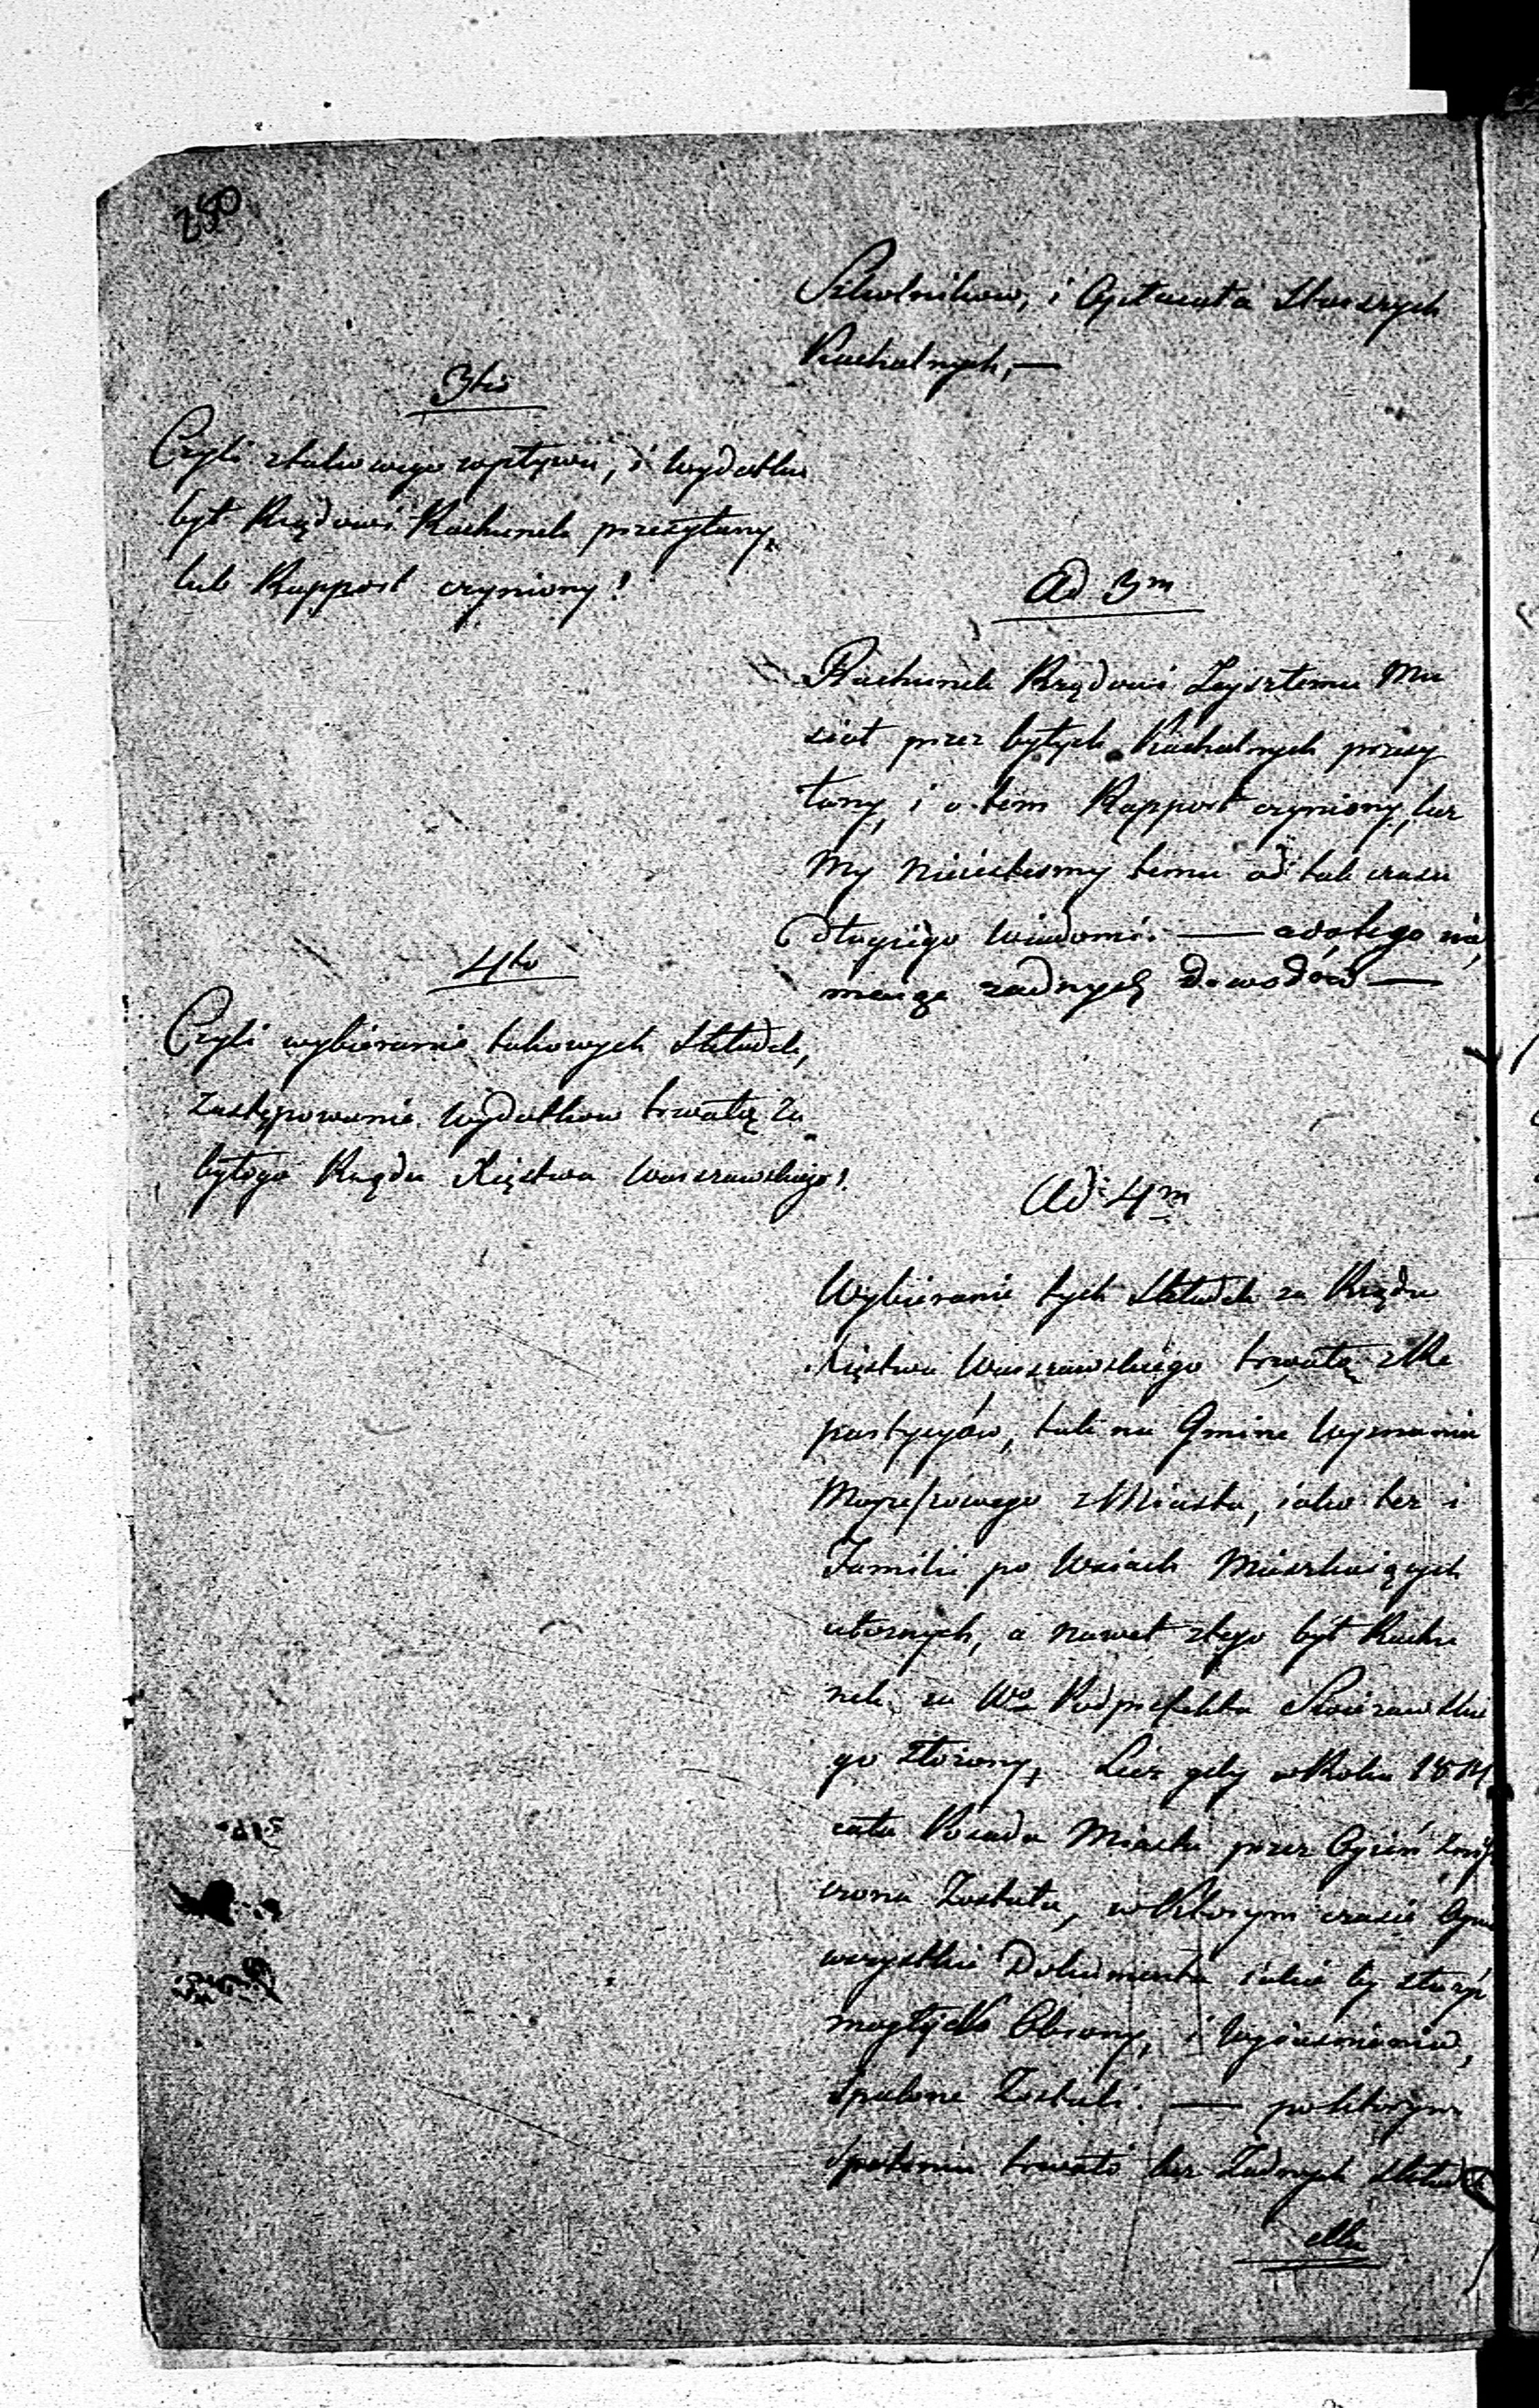 280
Szkolnikow, i Opłacała Starszych
Kachalnych, —
3tio
Czyli ztakowego wpływu, i wydatku
był Rządowi Rachunek przesyłany,
lub Rapport czyniony?
Ad 3m
Rachunek Rządowi Zeyszłemu Mu
siał przez byłych Kachalnych przesy
łany, i o tem Rapport czyniony, lecz
My nieiesteśmy temu od tak czasu
Długiego Wiadomi. — a do tego nie
maią żadnych dowodów —
4to
Czyli wybieranie takowych Składek,
Zastępowanie wydatkow trwałą za
byłego Rządu Xięstwa Warszawskiego?
Ad 4m
Wybieranie tych Składek za Rządu
Xięstwa Warszawskiego trwałą z Re
partycyów, tak na Gminę Wyznania
Moyżeszowego z Miasta, iako też i
Familii po Wsiach Mieszkaiących
a nawet z tego był Rachu
nek za Wo Podprefekta
go złożony, Lecz gdy w Roku 1814
cała Posada Miasta przez Ogień znisz
czona Została, w którym czasie
wszystkie Dokumenta iakie by służyć
mogły do Obrony, i Wyiaśnienia,
Spalone Zostali. — po którym
Spaleniu trwało bez Żadnych Skład